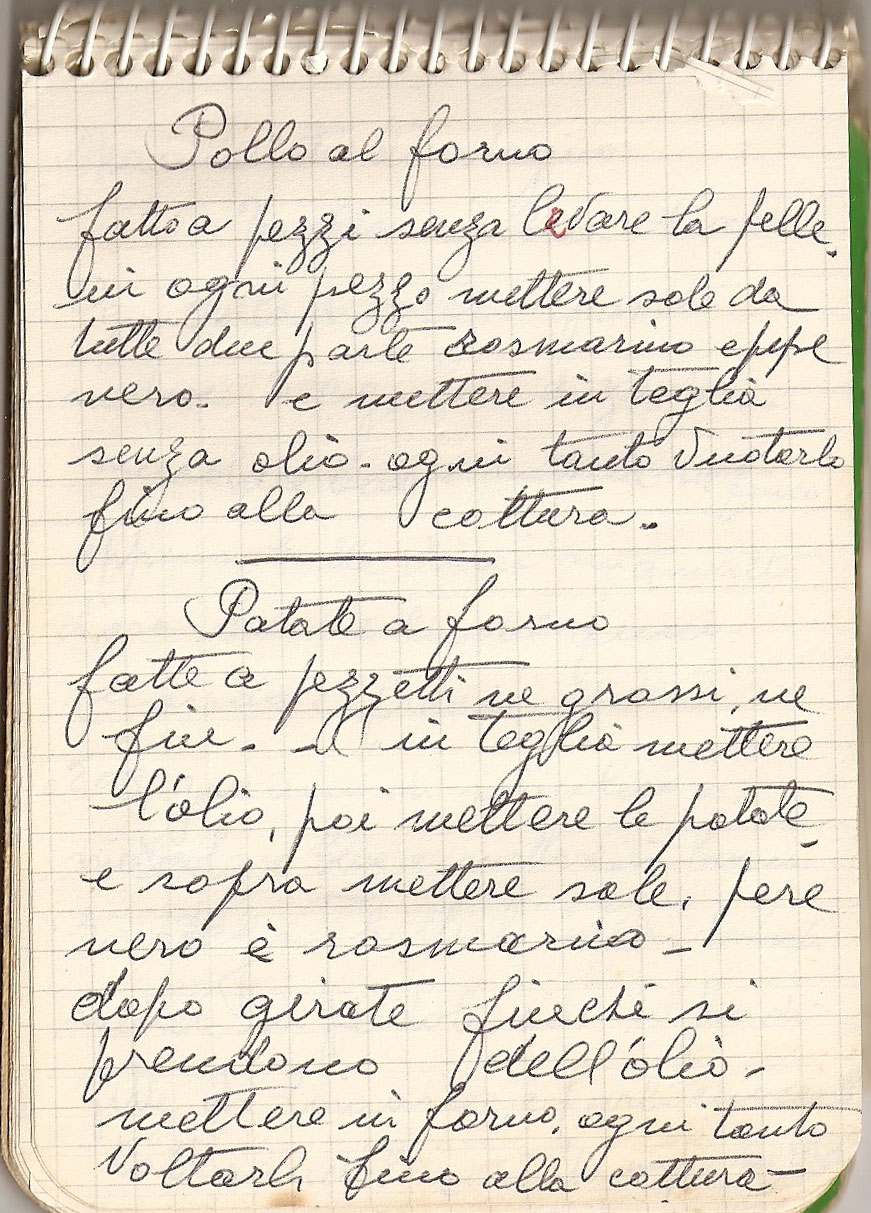 Pollo al forno
fatto a pezzi senza levare la pelle.
in ogni pezzo mettere sale da
tutte due parte rosmarino e ppe
nero. e mettere in teglia
senza olio - ogni tanto
fino alla cottura.
Patate a forno
fatte a pezzetti ne grossi, ne
fine. - in teglia mettere
l'olio, poi mettere le patate
e sopra mettere sale, pepe
nero è rosmarino -
dopo girate finche si
prendono dell'olio -
mettere in forno, ogni tanto
voltarli fino alla cottura -